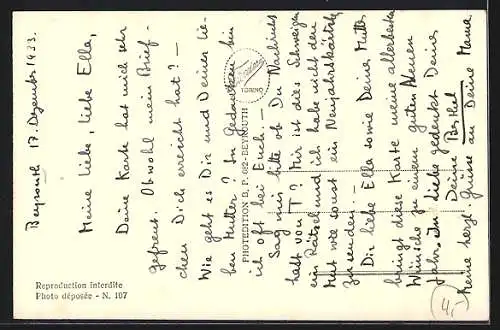 Beyrouth 17. Dezember 1933.
Meine liebe, liebe Ella,
Deine Karte hat mich sehr
gefreut. Obwohl mein Brief-
chen Dich erreicht hat? –
Wie geht es Dir und Deiner lie-
ben Mutter? In Gedanken bin
ich oft bei Euch. –
Sag mir bitte ob Du Nachricht
hast von T? Mir ist dies Schweigen
ein Rätsel und ich habe nicht den
Mut wie sonst ein Neujahrskärtchen
zu senden. –
Dir liebe Ella sowie Deiner Mutter
bringt diese Karte meine allerbesten
Wünsche zu einem guten Neuen
Jahr. In Liebe gedenkt Deiner
Deine Berthel
Meine herzl. Grüsse an Deine Mama
PHOTEDITION D, P. 622-BEYROUTH
TORINO
Reproduction interdite
Photo déposée - N. 107
4,-